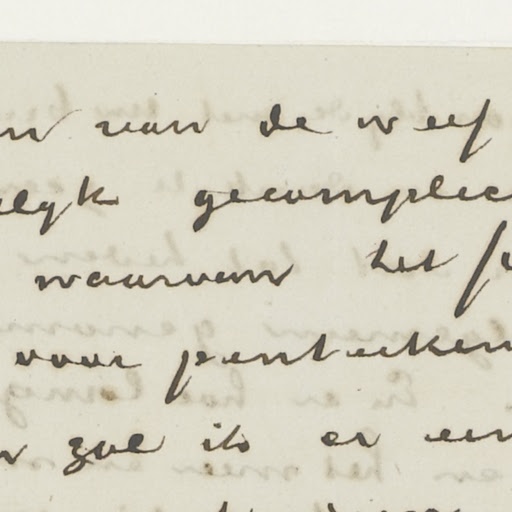 en van de weef
elyk gecomplic
waarvan het
voor pentecken
zal ik er een